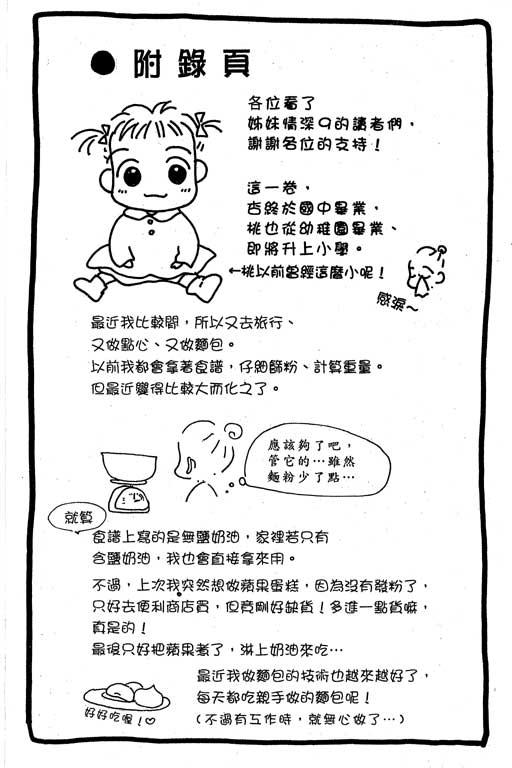 ●附錄頁
各位看了
姊妹情深9的讀者們，
謝謝各位的支持！
這一卷，
杏終於國中畢業，
桃也從幼稚園畢業、
即將升上小學。
←桃以前曾經這麼小呢！
感淚～
最近我比較閒，所以又去旅行、
又做點心、又做麵包。
以前我都會拿著食譜，仔細篩粉、計算重量。
但最近變得比較大而化之了。
應該夠了吧，
管它的…雖然
麵粉少了點…
就算
食譜上寫的是無鹽奶油，家裡若只有
含鹽奶油，我也會直接拿來用。
不過，上次我突然想做蘋果蛋糕，因為沒有發粉了，
只好去便利商店買，但竟剛好缺貨！多進一點貨嘛，
真是的！
最後只好把蘋果煮了，淋上奶油來吃…
最近我做麵包的技術也越來越好了，
每天都吃親手做的麵包呢！
（不過有工作時，就無心做了…）
好好吃喔！♡